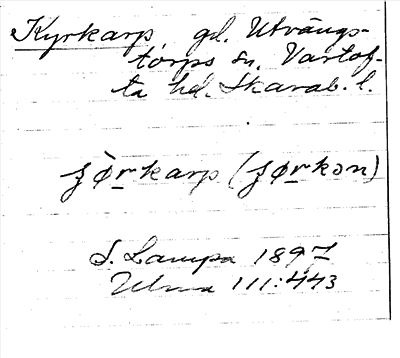 Kyrkarp gd. Utvängs-
torps sn. Vartof-
ta hd. Skarab. l.
ʒørkarp (ʒørkən)
S. Lampa 1897
Ulma 111:443